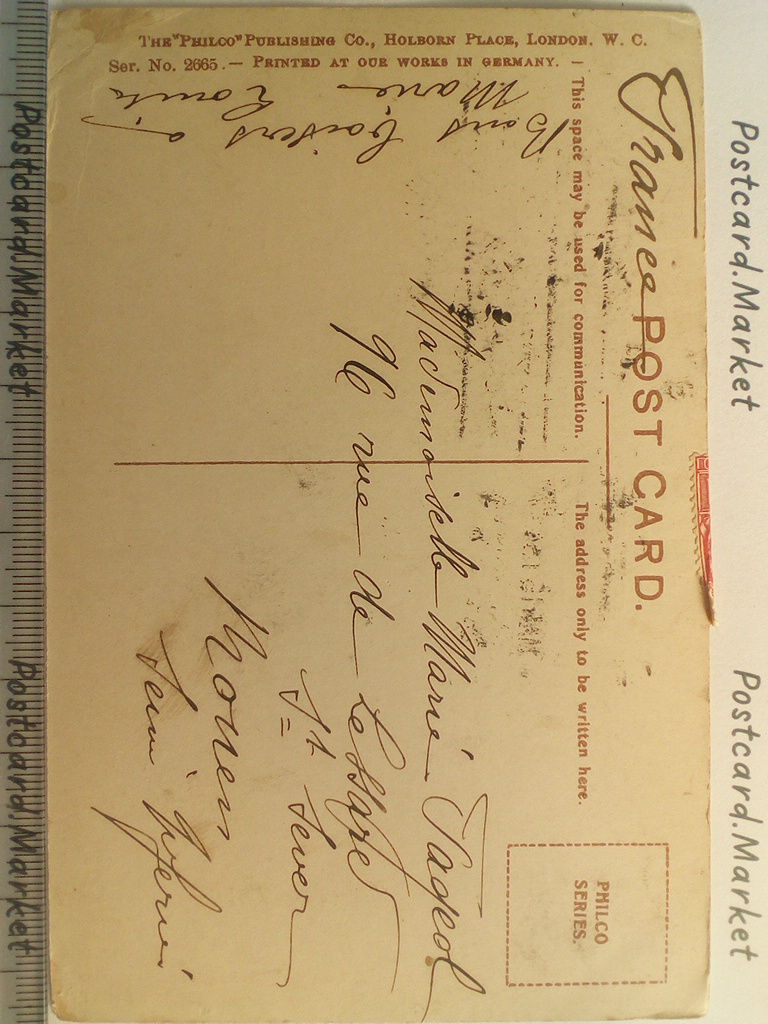 THE "PHILCO" PUBLISHING CO., HOLBORN PLACE, LONDON. W. C.
Ser. No. 2665.— PRINTED AT OUR WORKS IN GERMANY.
France
POST CARD.
This space may be used for communication.
The address only to be written here.
PHILCO
SERIES.
Bons baisers à
Marie Louise
Mademoiselle Marie
96 rue de
St Sever
Rouen
Seine Inferié
Postcard.Market
Postcard.Market
Postcard.Market
Postcard.Market
Postcard.Market